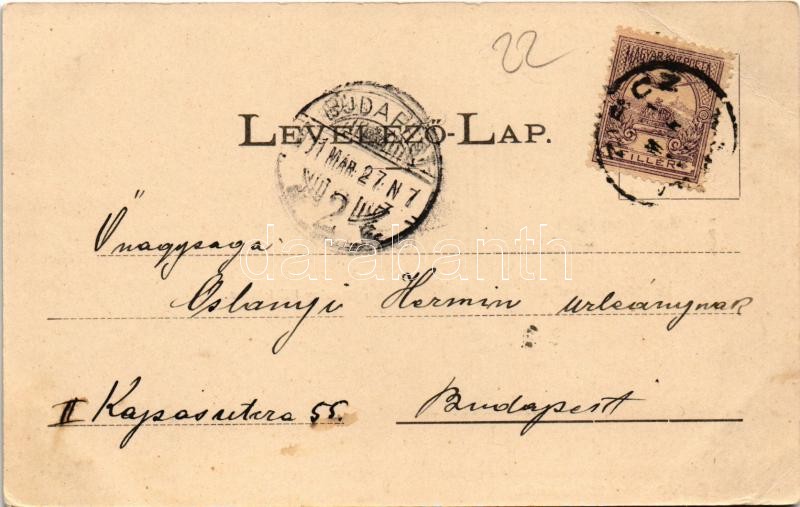 22
MAGYAR KIR. POSTA
FILLÉR
LEVELEZŐ-LAP.
BUDAPEST
MÁR. 27. N 7
2
Őnagysága
Oslanyi Hermin urleánynak
II Kapasutcza 55.
Budapest
darabanth